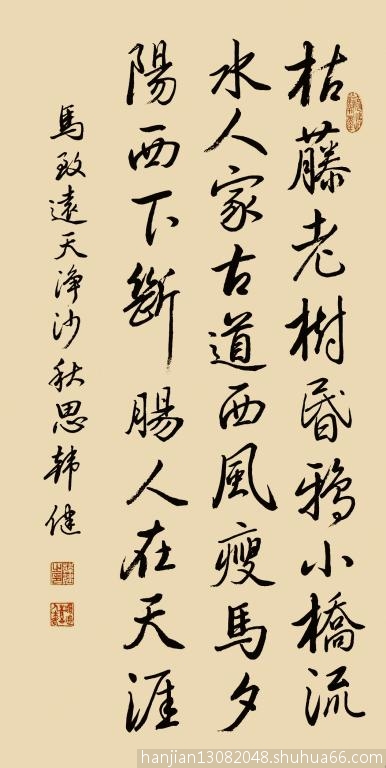 枯藤老樹昏鴉小橋流
水人家古道西風瘦馬夕
陽西下斷腸人在天涯
馬致遠天淨沙秋思韩健
hanjian13082048.shuhua66.com